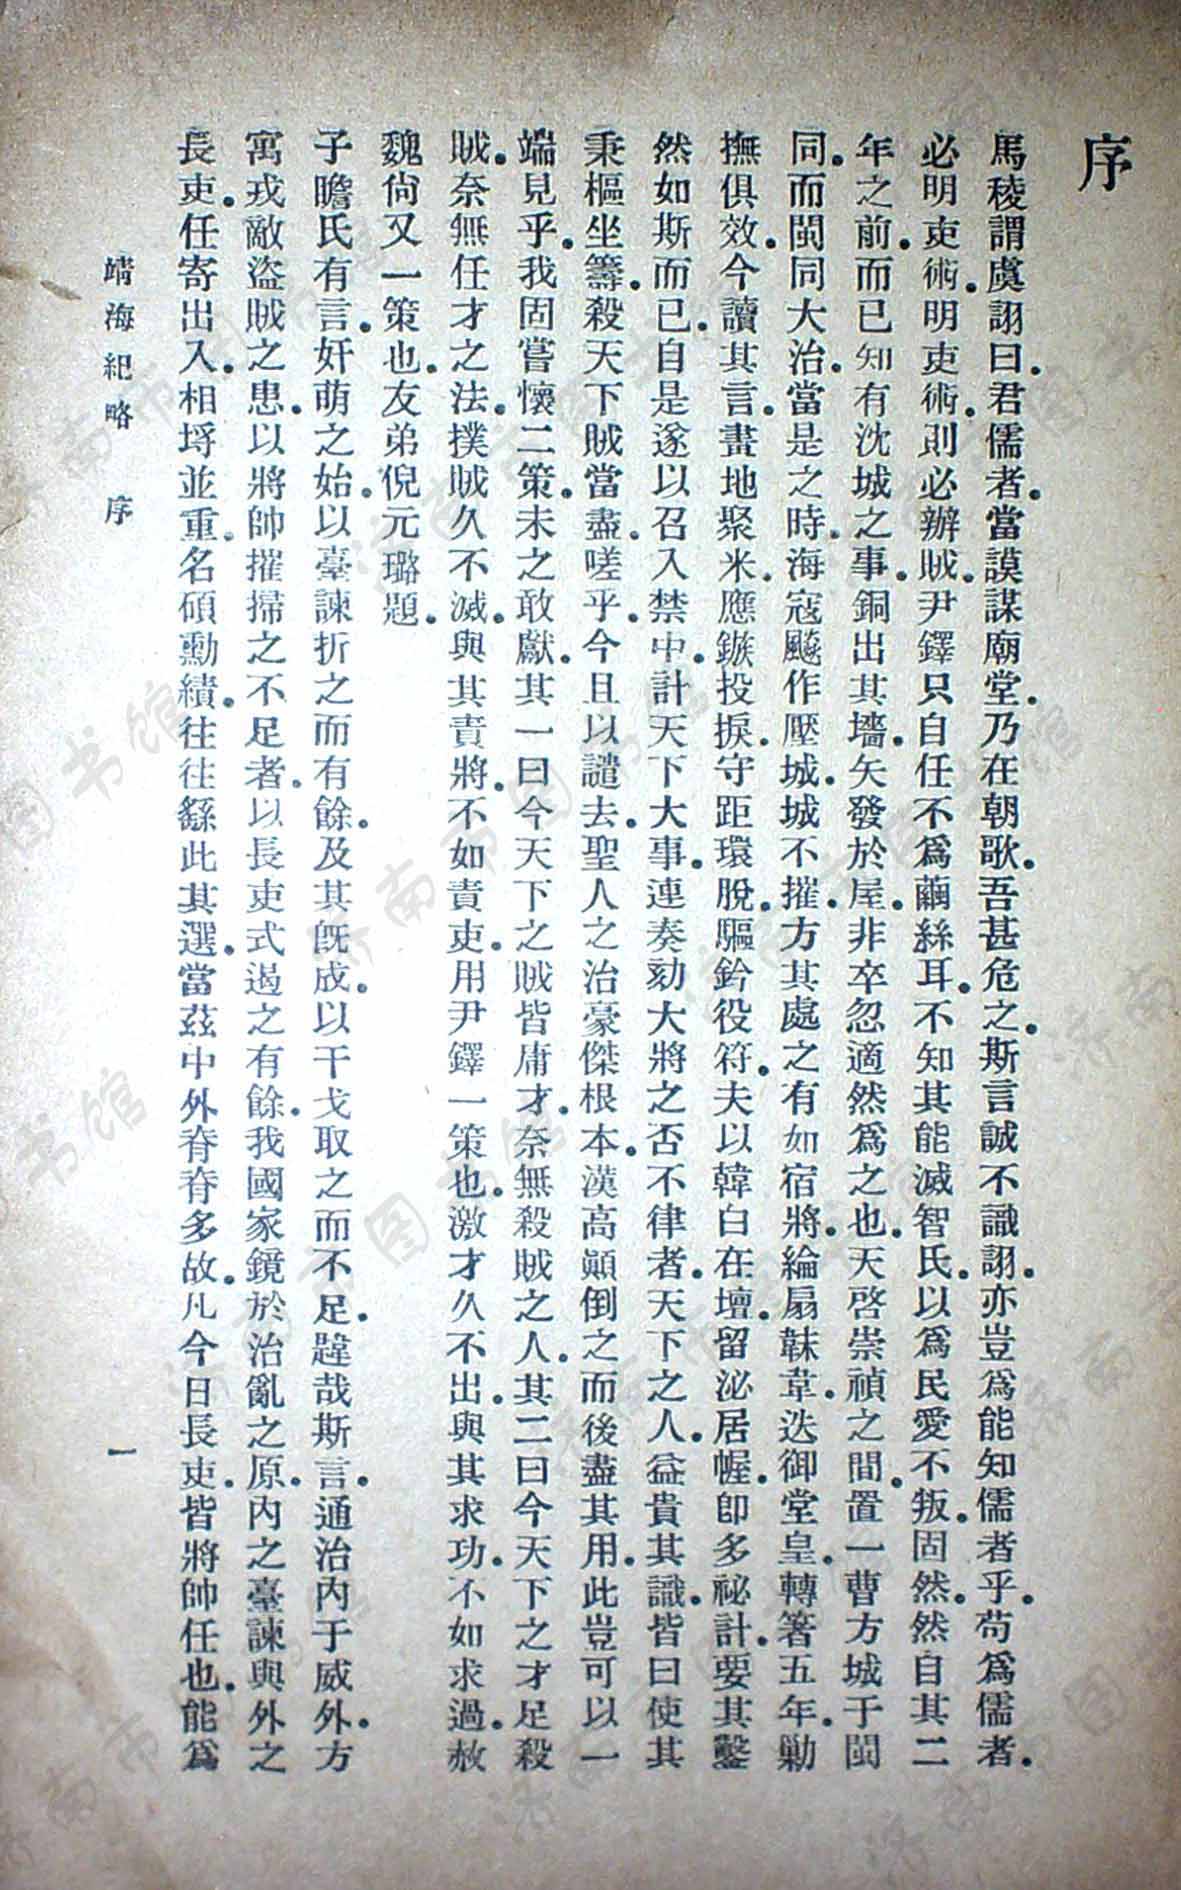 序
馬稜謂虞詡曰。君儒者。當謨謀廟堂。乃在朝歌。吾甚危之。斯言誠不識詡。亦豈爲能知儒者乎。苟爲儒者。
必明吏術。明吏術。則必辦賊。尹鐸只自任不爲繭絲耳。不知其能滅智氏。以爲民愛不叛。固然。然自其二
年之前。而已知有沈城之事。銅出其墻。矢發於屋。非卒忽適然爲之也。天啓崇禎之間。置一曹方城于閩
同。而閩同大治。當是之時。海寇飈作。壓城。城不摧。方其處之。有如宿將。綸扇韎韋。迭御堂皇。轉箸五年。勦
撫俱效。今讀其言。畫地聚米。應鏃投捩。守距環脫。驅鈐役符。夫以韓白在壇。留泌居幄。卽多祕計。要其鑿
然如斯而已。自是遂以召入禁中。計天下大事。連奏劾大將之否不律者。天下之人。益貴其識。皆曰使其
秉樞坐籌。殺天下賊當盡。嗟乎。今且以譴去。聖人之治豪傑根本。漢高顚倒之而後盡其用。此豈可以一
端見乎。我固嘗懷二策。未之敢獻。其一曰今天下之賊皆庸才。奈無殺賊之人。其二曰今天下之才足殺
賊。奈無任才之法。撲賊久不滅。與其責將。不如責吏。用尹鐸一策也。激才久不出。與其求功。不如求過。赦
魏尙又一策也。友弟倪元璐題。
子瞻氏有言。奸萌之始。以臺諫折之而有餘。及其旣成。以干戈取之而不足。韙哉斯言。通治內于威外。方
寓戎敵盜賊之患。以將帥摧掃之不足者。以長吏式遏之有餘。我國家鏡於治亂之原。內之臺諫與外之
長吏。任寄出入。相埒並重。名碩勳績。往往繇此其選。當茲中外脊脊多故。凡今日長吏。皆將帥任也。能爲
靖海紀略 序 一
济南市图书馆